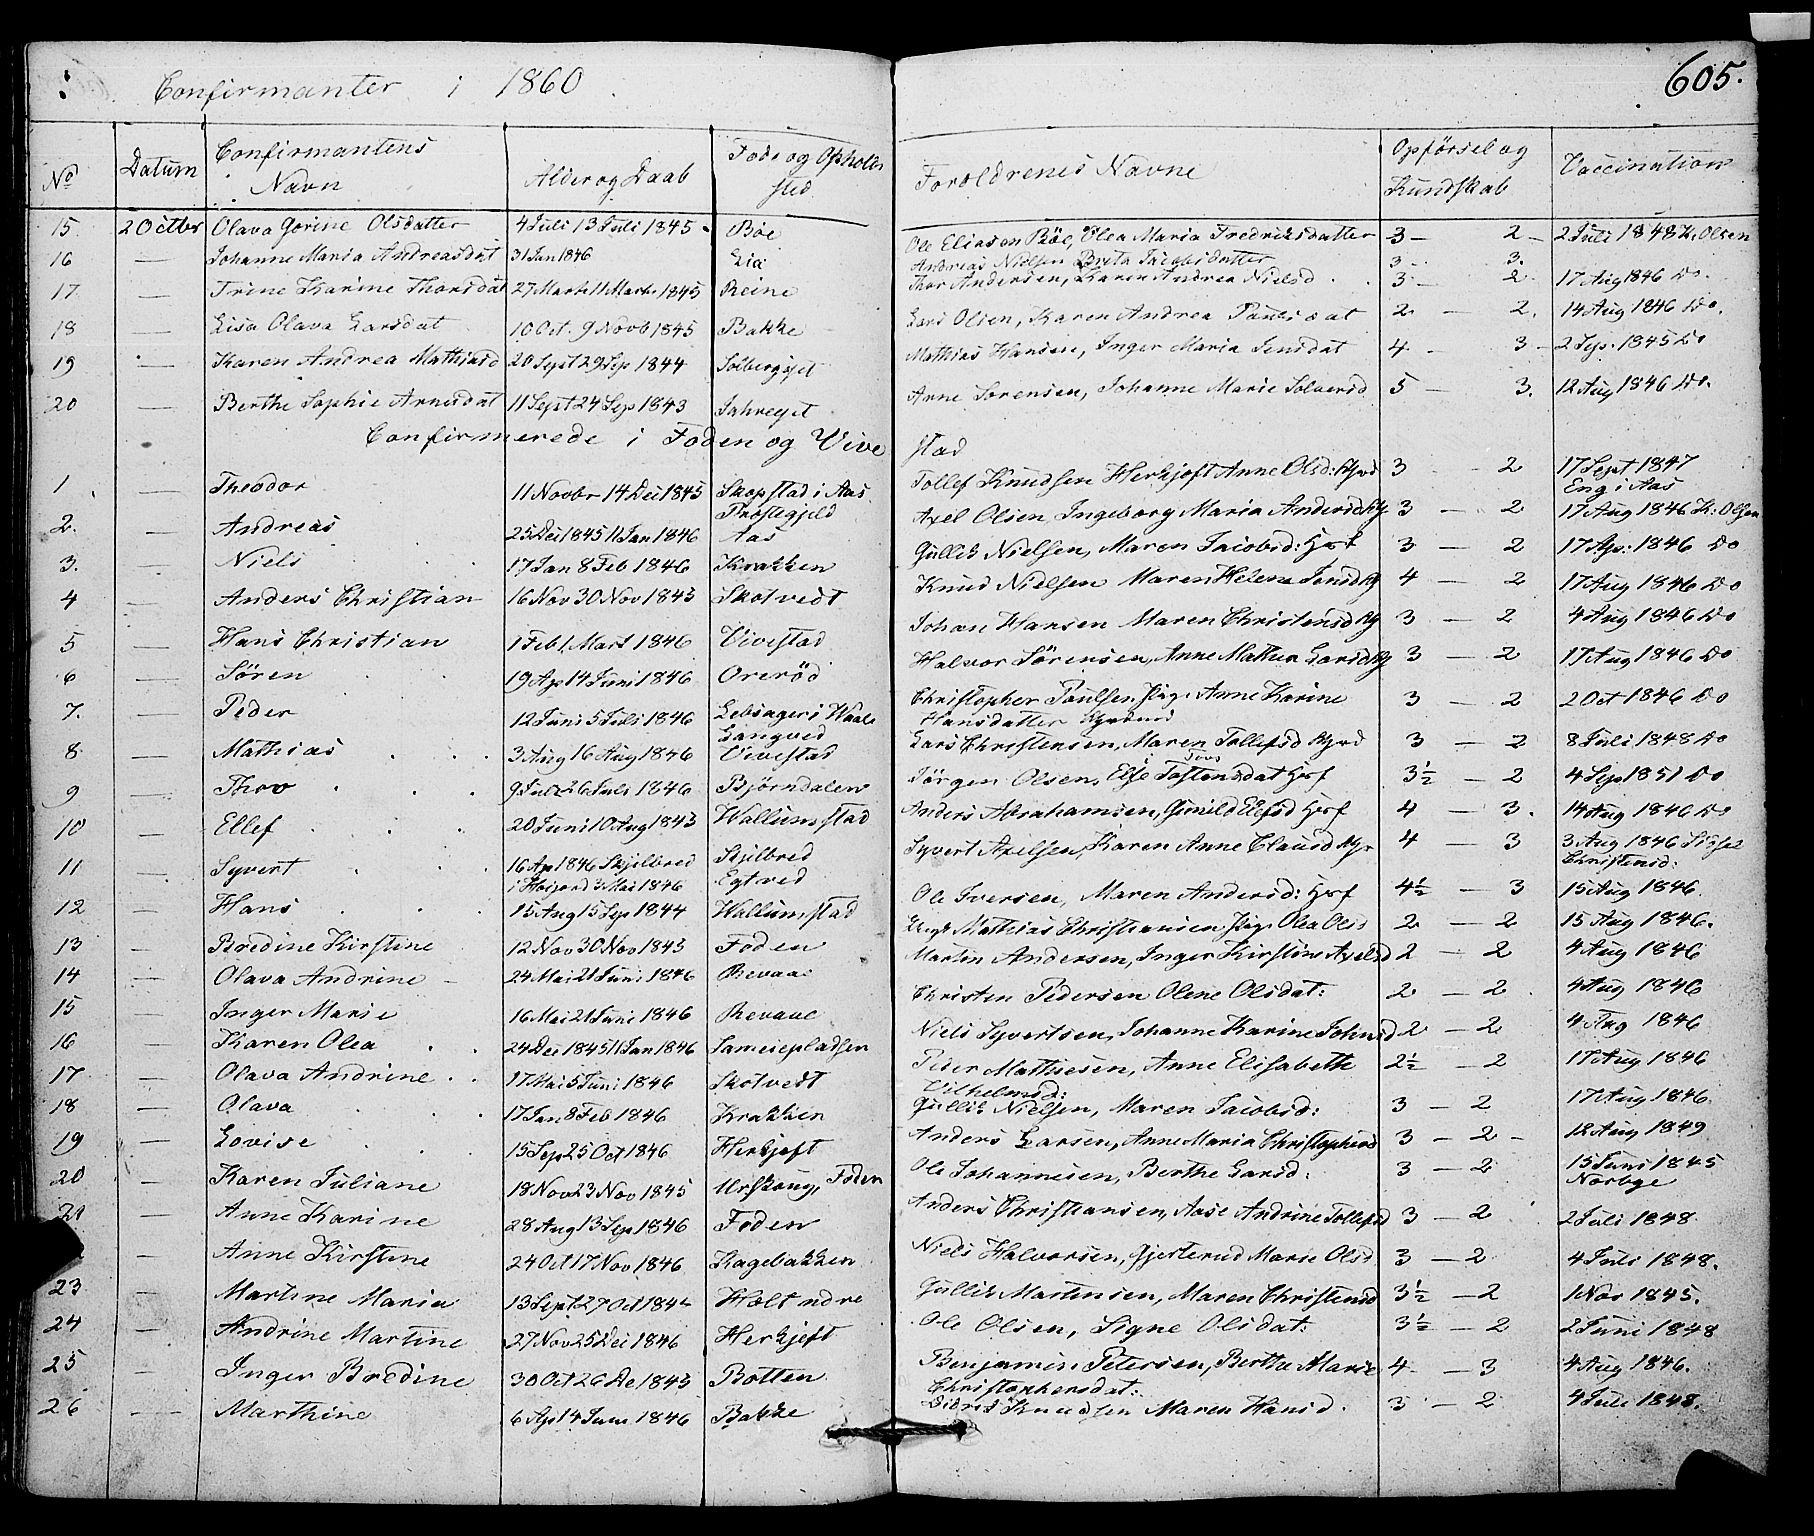 Confirmanter i 1860
605.
No Datum Confirmantens Navn Alder og Daab Føde og Opholds sted Foreldrenes Navne Opførsel og Kundskab Vaccination
15 2 Octber Olava Gorine Olsdatter 4 Juli 13 Juli 1845 Bøe Ole Eliasen Bøe, Olea Maria Fredriksdatter 3 - 2 - 2 Juli 1848 K. Olsen
16 — Johanne Maria Andreasdat 31 Jan 1846 Lia Andreas Nielsen Berta Jacobsdatter 3 - 3.
17. — Trine Karine Thorsdat 27 Marts 1845 Reine Thor Andersen, Karen Andrea Nielsd 3 - 2 17 Aug 1846 Do.
18 — Lisa Olava Larsdat 10 Oct. 9 Novb 1845 Bakke Lars Olsen, Karen Andrea Paulsdat 2 - 2. 14 Aug 1846 Do.
19 — Karen Andrea Mathiasd 20 Sept 29 Sep 1844 Solbergejet Mathias Hansen, Inger Maria Jensdat 4 - 3 - 2 Sep. 1845 Do
20 — Berthe Sophie Arnesdat 11 Sept 24 Sep 1843 Jahrejet Arne Sørensen, Johanne Marie Solversd 5 - 3. 12 Aug 1846 Do.
Confirmerede i Foden og Vivestad
1. — Theodor 11 Novbr 14 Dei 1845 Skopstad i Aas Præstegjeld Tollef Knudsen Herkjeft Anne Olsd: Hjrd 3 - 2 17 Sept 1847 Eng i Aas
2. — Andreas 25 Dei 1845 11 Jan 1846 Aas Axel Olsen, Ingeborg Maria Andersd 3 - 2 17 Aug 1846 K: Olsen
3. — Niels 17 Jan 8 Feb 1846 Krakken Gullik Nielsen, Maren Jacobsd: 3 - 2 17 Ap: 1846 Do
4 — Anders Christian 16 Nov 30 Nov 1845 Skotvedt Knud Nielsen Maren Helene Jensd 4 - 2 17 Aug 1846 Do
5 — Hans Christian 1 Feb 1 Mart 1846 Vivestad Johan Hansen Maren Christensd 3 - 2 4 Aug 1846 Do
6 — Søren 19 Ap 14 Juni 1846 Orerød Halvor Sørensen, Anne Mathea Larsd 3 - 2 17 Aug 1846 Do
7. — Peder 12 Juni 5 Juli 1846 Lebsager i Waale Langved Christopher Paulsen Pige Anne Karine Hansdatter 3 - 2 2 Oct 1846 Do
8 — Mathias 3 Aug 16 Aug 1846 Vivestad Lars Christensen, Maren Tollefsd 3 - 2 8 Juli 1848 Do
9 — Thov 9 Juli 26 Juli 1846 Bjørndalen Jørgen Olsen, Else Tostensdat 3½ - 2 4 Sep 1851 Do
10 — Ellef 20 Juni 10 Aug 1845 Wallumstad Anders Abrahamsen, Gunild Elefsd 4 - 3. 14 Aug 1846 Do
11 — Syvert 16 Ap 1846 Skjelbred 3 Mai 1846 Skjelbred Egtved Syvert Axelsen, Karen Anne Clausd 4 - 3 3 Aug 1846 Christensd:
12 — Hans 15 Aug 15 Sep 1844 Wallumstad Ole Iversen, Maren Andersd: 4½ - 3 15 Aug 1846.
13 — Bredine Kirstine 12 Nov 30 Nov 1845 Foden Mathias Christiansen Pige Olea Olsd 2 - 2 15 Aug 1846.
14 — Olava Andrine 24 Mai 21 Juni 1846 Revaae Martin Andersen, Inger Kirstine Axelsd 2 - 2 4 Aug 1846
15 — Inger Marie 16 Mai 21 Juni 1846 Revaae Christen Pedersen Olene Olsdat: 2 - 2. 4 Aug 1846
16 — Karen Olea 24 Dec 1845 11 Jan 1846 Sameiepladsen Niels Syvertsen, Johanne Karine Johnsd 2 - 2 4 Aug 1846
17 — Olava Andrine 17 Mai 5 Juni 1846 Skotvedt Peder Mathiesen, Anne Elisabeth Vilhelmsd: 2½ - 2 17 Aug 1846
18 — Olava 17 Jan 8 Feb 1846 Krakken Gullik Nielsen, Maren Jacobsd: 3 - 2 17 Aug 1846.
19 — Lovise 15 Sep 25 Oct 1846 Herkjeft Anders Larsen, Anne Maria Christophersd 3 - 2 - 12 Aug 1849
20 — Karen Juliane 18 Nov 23 Nov 1845 Urskoug, Foden Ole Johannesen, Berthe Larsd: 3 - 2 15 Juni 1845 Norbye
21 — Anne Karine 28 Aug 13 Sep 1846 Foden Anders Christiansen, Aase Andrine Tollefsd 3 - 2 2 Juli 1848.
— Anne Kirstine 24 Oct 17 Nov 1846 Kagebakken Niels Halvorsen, Gjesterud Marie Olsd 3 - 2 4 Juli 1848.
23 — Martine Maria 13 Sept 27 Oct 1844 Holt ndre Gullik Martinsen, Maren Christensd 3½ - 2 1 Nov 1845.
24 — Andrine Martine 27 Nov 25 Dei 1846 Herkjeft Ole Olsen, Signe Olsdat: 3½ - 2 2 Juni 1848
25 — Inger Bredine 30 Oct 26 De 1845 Botten Benjamin Petersen, Berthe Marie Christophersdat: 4 - 3 4 Aug 1846.
26 — Marthine 6 Ap 14 Juni 1846 Bakke Didrik Knudsen Maren Hansd. 3 - 2 4 Juli 1848.